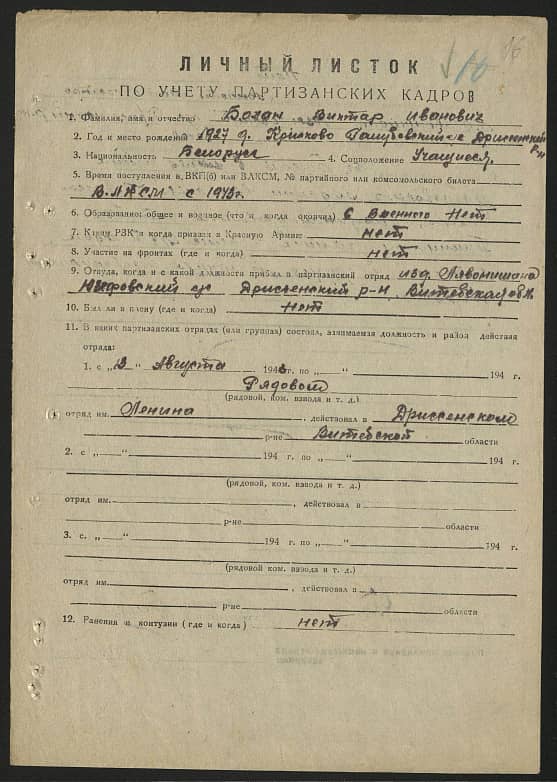 16
16
ЛИЧНЫЙ ЛИСТОК
ПО УЧЕТУ ПАРТИЗАНСКИХ КАДРОВ
1. Фамилия, имя и отчество Боган Виктар Иванович
2. Год и место рождения 1927 г. Дриссенский
р-н
3. Национальность Белорусс 4. Соцположение Учащиеся
5. Время поступления в ВКП(б) или ВЛКСМ, № партийного или комсомольского билета
В.Л.К.С.М с
6. Образование общее и военное (что и когда окончил) 6 Военного Нет
7. Каким РЗК и когда призван в Красную Армию нет
8. Участие на фронтах (где и когда) нет
9. Откуда, когда и с какой должности прибыл в партизанский отряд из д.
с/с Дриссенский р-н. Витебская обл.
10. Был ли в плену (где и когда) нет
11. В каких партизанских отрядах (или группах) состоял, занимаемая должность и район действия
отряда:
1. с „ " Августа 1943 г. по „ " 194 г.
Рядовой
(рядовой, ком. взвода и т. д.)
отряд им. Ленина, действовал в Дриссенском
р-не Витебской области
2. с „ " 194 г. по „ " 194 г.
(рядовой, ком. взвода и т. д.)
отряд им. , действовал в
р-не области
3. с. „ " 194 г. по „ " 194 г.
(рядовой ком. взвода и т. д.)
отряд им. , действовал в
р-не области
12. Ранения и контузии (где и когда) нет